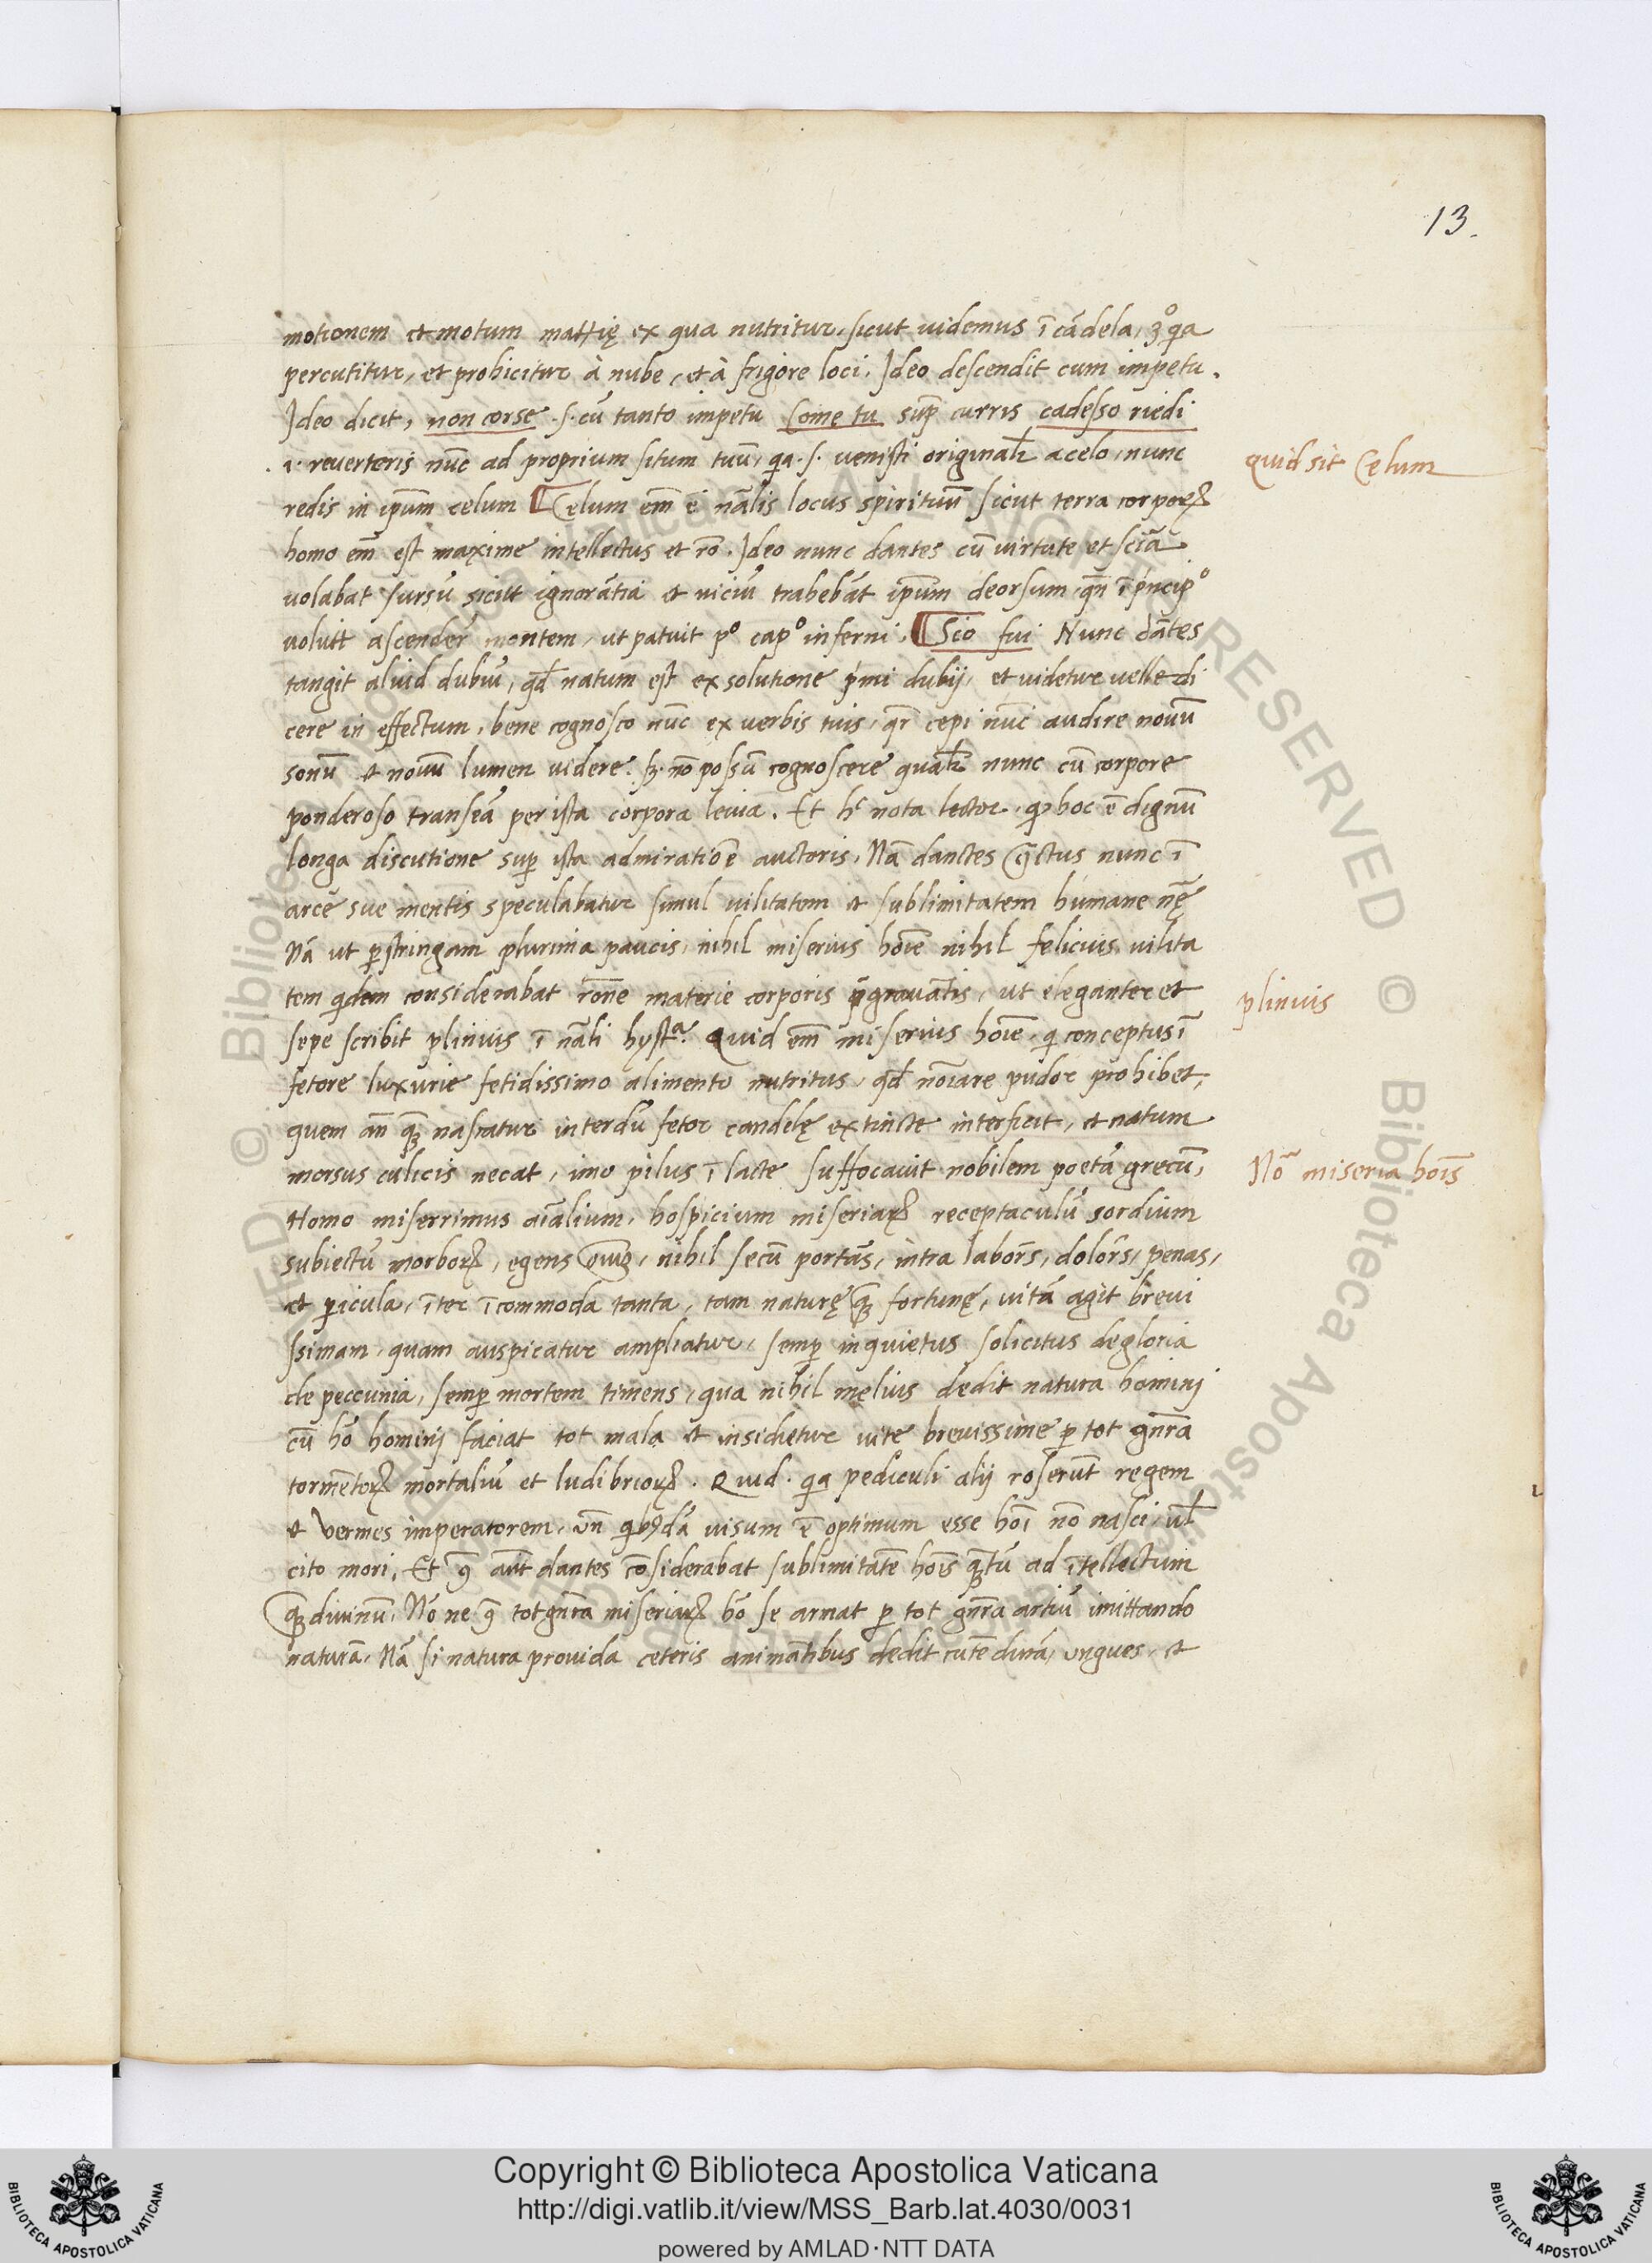 13.
motionem et motum mat̄ię ex qua nutritur, sicut uidemus ī cādela, 3º qa
percutitur, et prohicitur à nube, et à frigore loci. Ideo descendit cum impetu.
Ideo dicit, non corse .s. cū tanto impetu come tu sup̄ curris cadesso riedi
.i. reuerteris nūc ad proprium situm tuū, qa .s. uenisti originalr̄ a celo, nunc
quid sit Celum
redis in ipsum celum ¶ Celum em̄ ē nālis locus spirituū sicut terra corporꝝ
homo em̄ est maxime intellectus et rō. Ideo nunc dantes cū virtute et scīā
uolabat sursū sicut ignorātia et uiciū trahebāt ipsum deorsum, qn̄ ī prīncipº
voluit ascender̄ montem, ut patuit pº capº inferni. ¶ Scio fui Nunc dātes
tangit aliud dubiū, qd̄ natum est ex solutione prīmi dubij, et videtur uelle di
cere in effectum, bene cognosco nūc ex verbis tuis, qr̄ cepi nūc audire nouū
sonū et nouū lumen videre. sꝫ nō possū cognoscere qualr̄ nunc cū corpore
ponderoso transeā per ista corpora leuia. Et hc nota lector, ꝙ hoc ē dignū
longa discutione sup̄ ista admiratiōē auctoris, Nā danctes nunc ī
arce sue mentis speculabatur simul uilitatem et sublimitatem humane nę̄
Nā ut ꝑstringam plurima paucis, nihil miserius hoīe nihil felicius, uilita
tem qdem considerabat rōne materie corporis p̄grauātis, ut eleganter et
plinius
sepe scribit plinius ī nāli hystª. Quid em̄ miserius hoīe, qi conceptus ī
fetore luxurie fetidissimo alimento nutritus, qd̄ noīare pudor prohibet,
quem an̄ qꝫ nascatur interdū fetor candelę extincte interficit, et natum
morsus culicis necat, imo pilus ī lacte suffocauit nobilem poetā grecū,
Nō miseria hoīs
Homo miserrimus aīalium, hospicium miseriaꝝ receptaculū sordium
subiectū morboꝝ, egens oīuꝫ, nihil secū portās, intra labors̄, dolors̄, penas,
et ꝑicula, īter īcommoda tanta, tam naturę qꝫ fortunę, uitā agit breui
ssimam, quam auspicatur ampliatur, semꝑ inquietus solicitus de gloria
de peccunia, semꝑ mortem timens, qua nihil melius dedit natura hominj
cū hō hominj faciat tot mala et insidietur uite breuissime ꝑ tot gn̄ra
tormētoꝝ mortaliū et ludibrioꝝ. Quid. qa pediculi alij roserūt regem
et vermes imperatorem, vn̄ qibꝰdā uisum ē optimum esse hoī nō nasci, ul̄
cito mori, Et ꝯ aūt dantes cōsiderabat sublimitatē hoīs qꝫtū ad ītellectum
qꝫ diuinū. Nōne ꝯ tot gn̄ra miseriaꝝ hō se armat ꝑ tot gn̄ra artiū imittando
naturā. Nā si natura prouida ceteris animātibus dedit cutē durā, ungues, et
Copyright © Biblioteca Apostolica Vaticana
http://digi.vatlib.it/view/MSS_Barb.lat.4030/0031
powered by AMLAD·NTT DATA
BIBLIOTECA APOSTOLICA VATICANA
BIBLIOTECA APOSTOLICA VATICANA